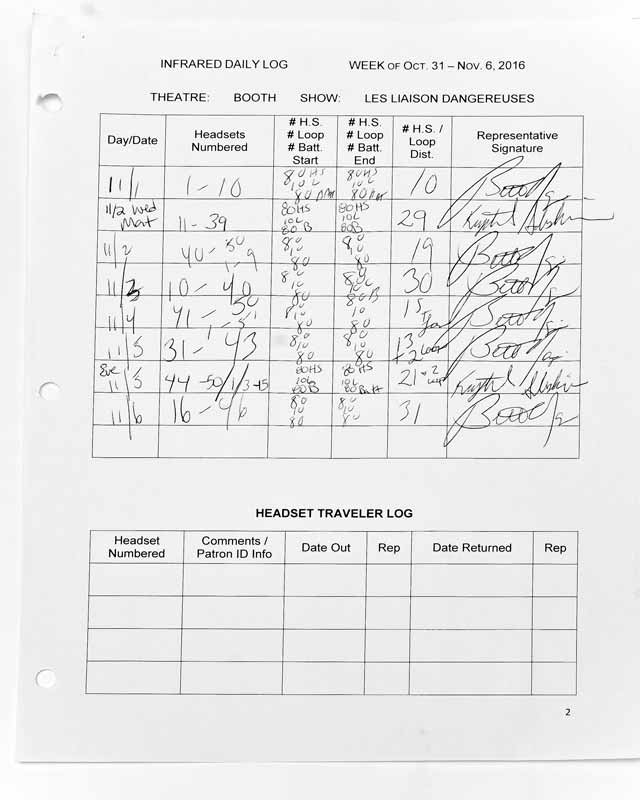 INFRARED DAILY LOG WEEK OF OCT. 31 – NOV. 6, 2016
THEATRE: BOOTH SHOW: LES LIAISON DANGEREUSES
Day/Date Headsets Numbered # H.S. # Loop # Batt. Start # H.S. # Loop # Batt. End # H.S. / Loop Dist. Representative Signature
11/1 1-10 80HS 10L 80 80HS 10L 80 10
11/2 Wed Mat 11-39 80HS 10L 80B 80HS 10L 80B 29
11/2 40-50 1-9 80 10 80 80 10 80 19
11/3 10-40 80 10 80 80 10L 80B 30
11/4 41-50 80 10 80 80 10 80 15
11/5 31-43 80 10 80 80 10 80 13 + 2 Loop
Eve 11/5 44-50/1/3-15 80HS 10L 80B 80HS 10L 80Batt 21 + 2 Loop
11/6 16-46 80 10 80 80 10 80 31
HEADSET TRAVELER LOG
Headset Numbered Comments / Patron ID Info Date Out Rep Date Returned Rep
2